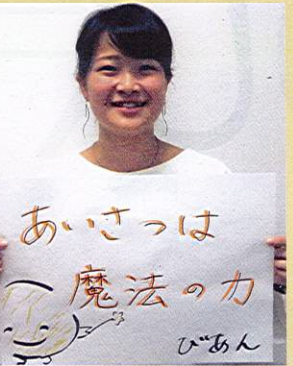 あいさつは
魔法の力
びあん